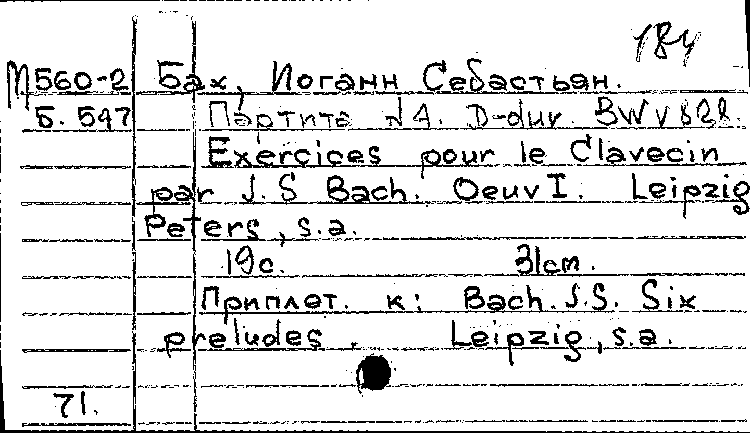 184
М560-2 Бах, Иоганн Себастьян.
Б. 547 Партита N4. D-dur. BWV 828.
Exercices pour le Clavecin
par J.S Bach. Oeuv I. Leipzig
Peters, s.a.
19с. 31см.
Приплет. к: Bach. J.S. Six
preludes. Leipzig, s.a.
71.